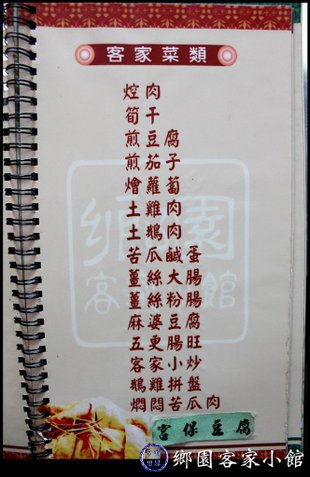 客家菜類
焢肉
筍干
煎豆腐
煎茄子
燴蘿蔔
土雞肉
土鵝肉
苦瓜鹹蛋
薑絲大腸
薑絲粉腸
麻婆豆腐
五更腸旺
客家小炒
鵝雞拼盤
燜悶苦瓜肉
宮保豆腐
鄉園客家小館
鄉園客家小館